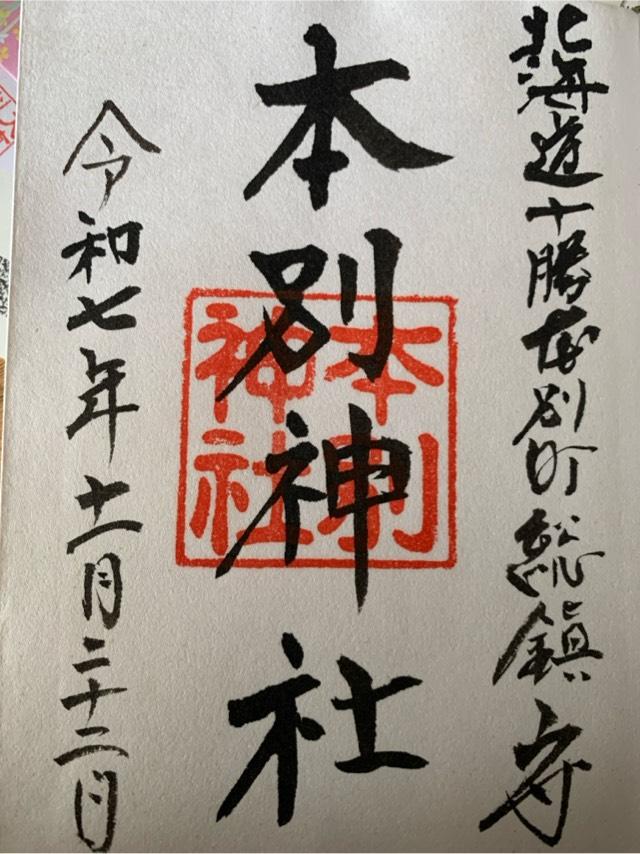 北海道十勝本別町総鎮守
本別神社
本別神社
令和七年十一月二十二日